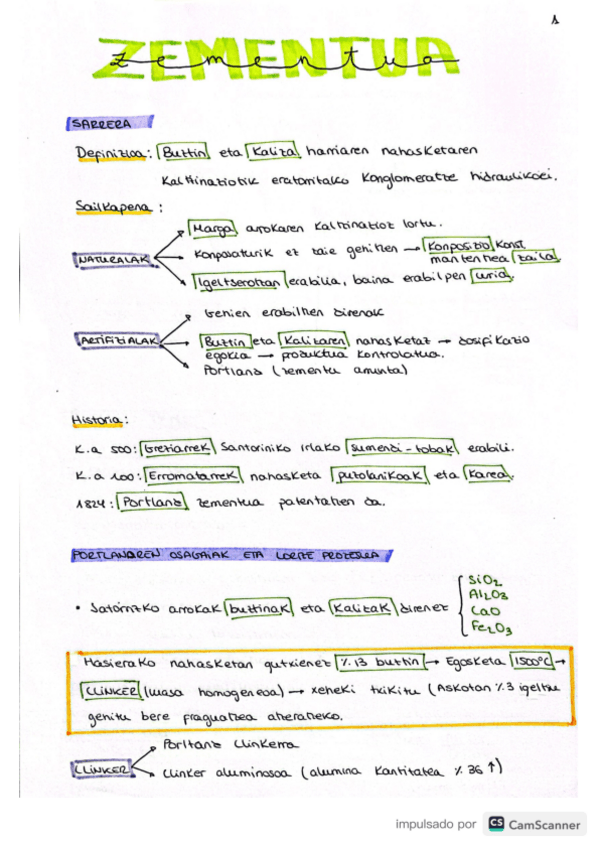 1
ZEMENTUA
zementua
SARRERA
Definizioa: Buztin eta Kaliza harriaren nahasketaren
Kaltzinaziotik eratorritako Konglomeratze hidraulikoei.
Sailkapena:
NATURALAK
Marga arrokaren kaltzinazioz lortu.
Konposaturik ez zaie gehitzen → Konposizio Konst.
mantentzea zaila
Igeltserotzan erabilia, baina erabilpen urria.
ARTIFIZIALAK
Gehien erabiltzen direnak
Buztin eta Kalizaren nahasketaz → dosifikazio
egokia → produktua kontrolatua.
Portland (zementu arrunta)
Historia:
K.a 500: Greziarrek Santoriniko irlako sumendi-tobak erabili.
K.a 100: Erromatarrek nahasketa putzolanikoak eta Karea.
1824: Portland zementua patentatzen da.
PORTLANDREN OSAGAIAK ETA LORTZE PROZESUA
• Jatorrizko arrokak buztinak eta Kalizak direnez
SiO2
Al2O3
CaO
Fe2O3
Hasierako nahasketan gutxienez % 13 buztin → Egosketa 1500ºC →
CLINKER (masa homogeneoa) → xeheki txikitu (Askotan % 3 igeltsu
gehitu bere fraguatzea atzeratzeko.
CLINKER
Portland Clinkerra
Clinker aluminosoa (alumina Kantitatea % 36 ↑)
impulsado por CS CamScanner